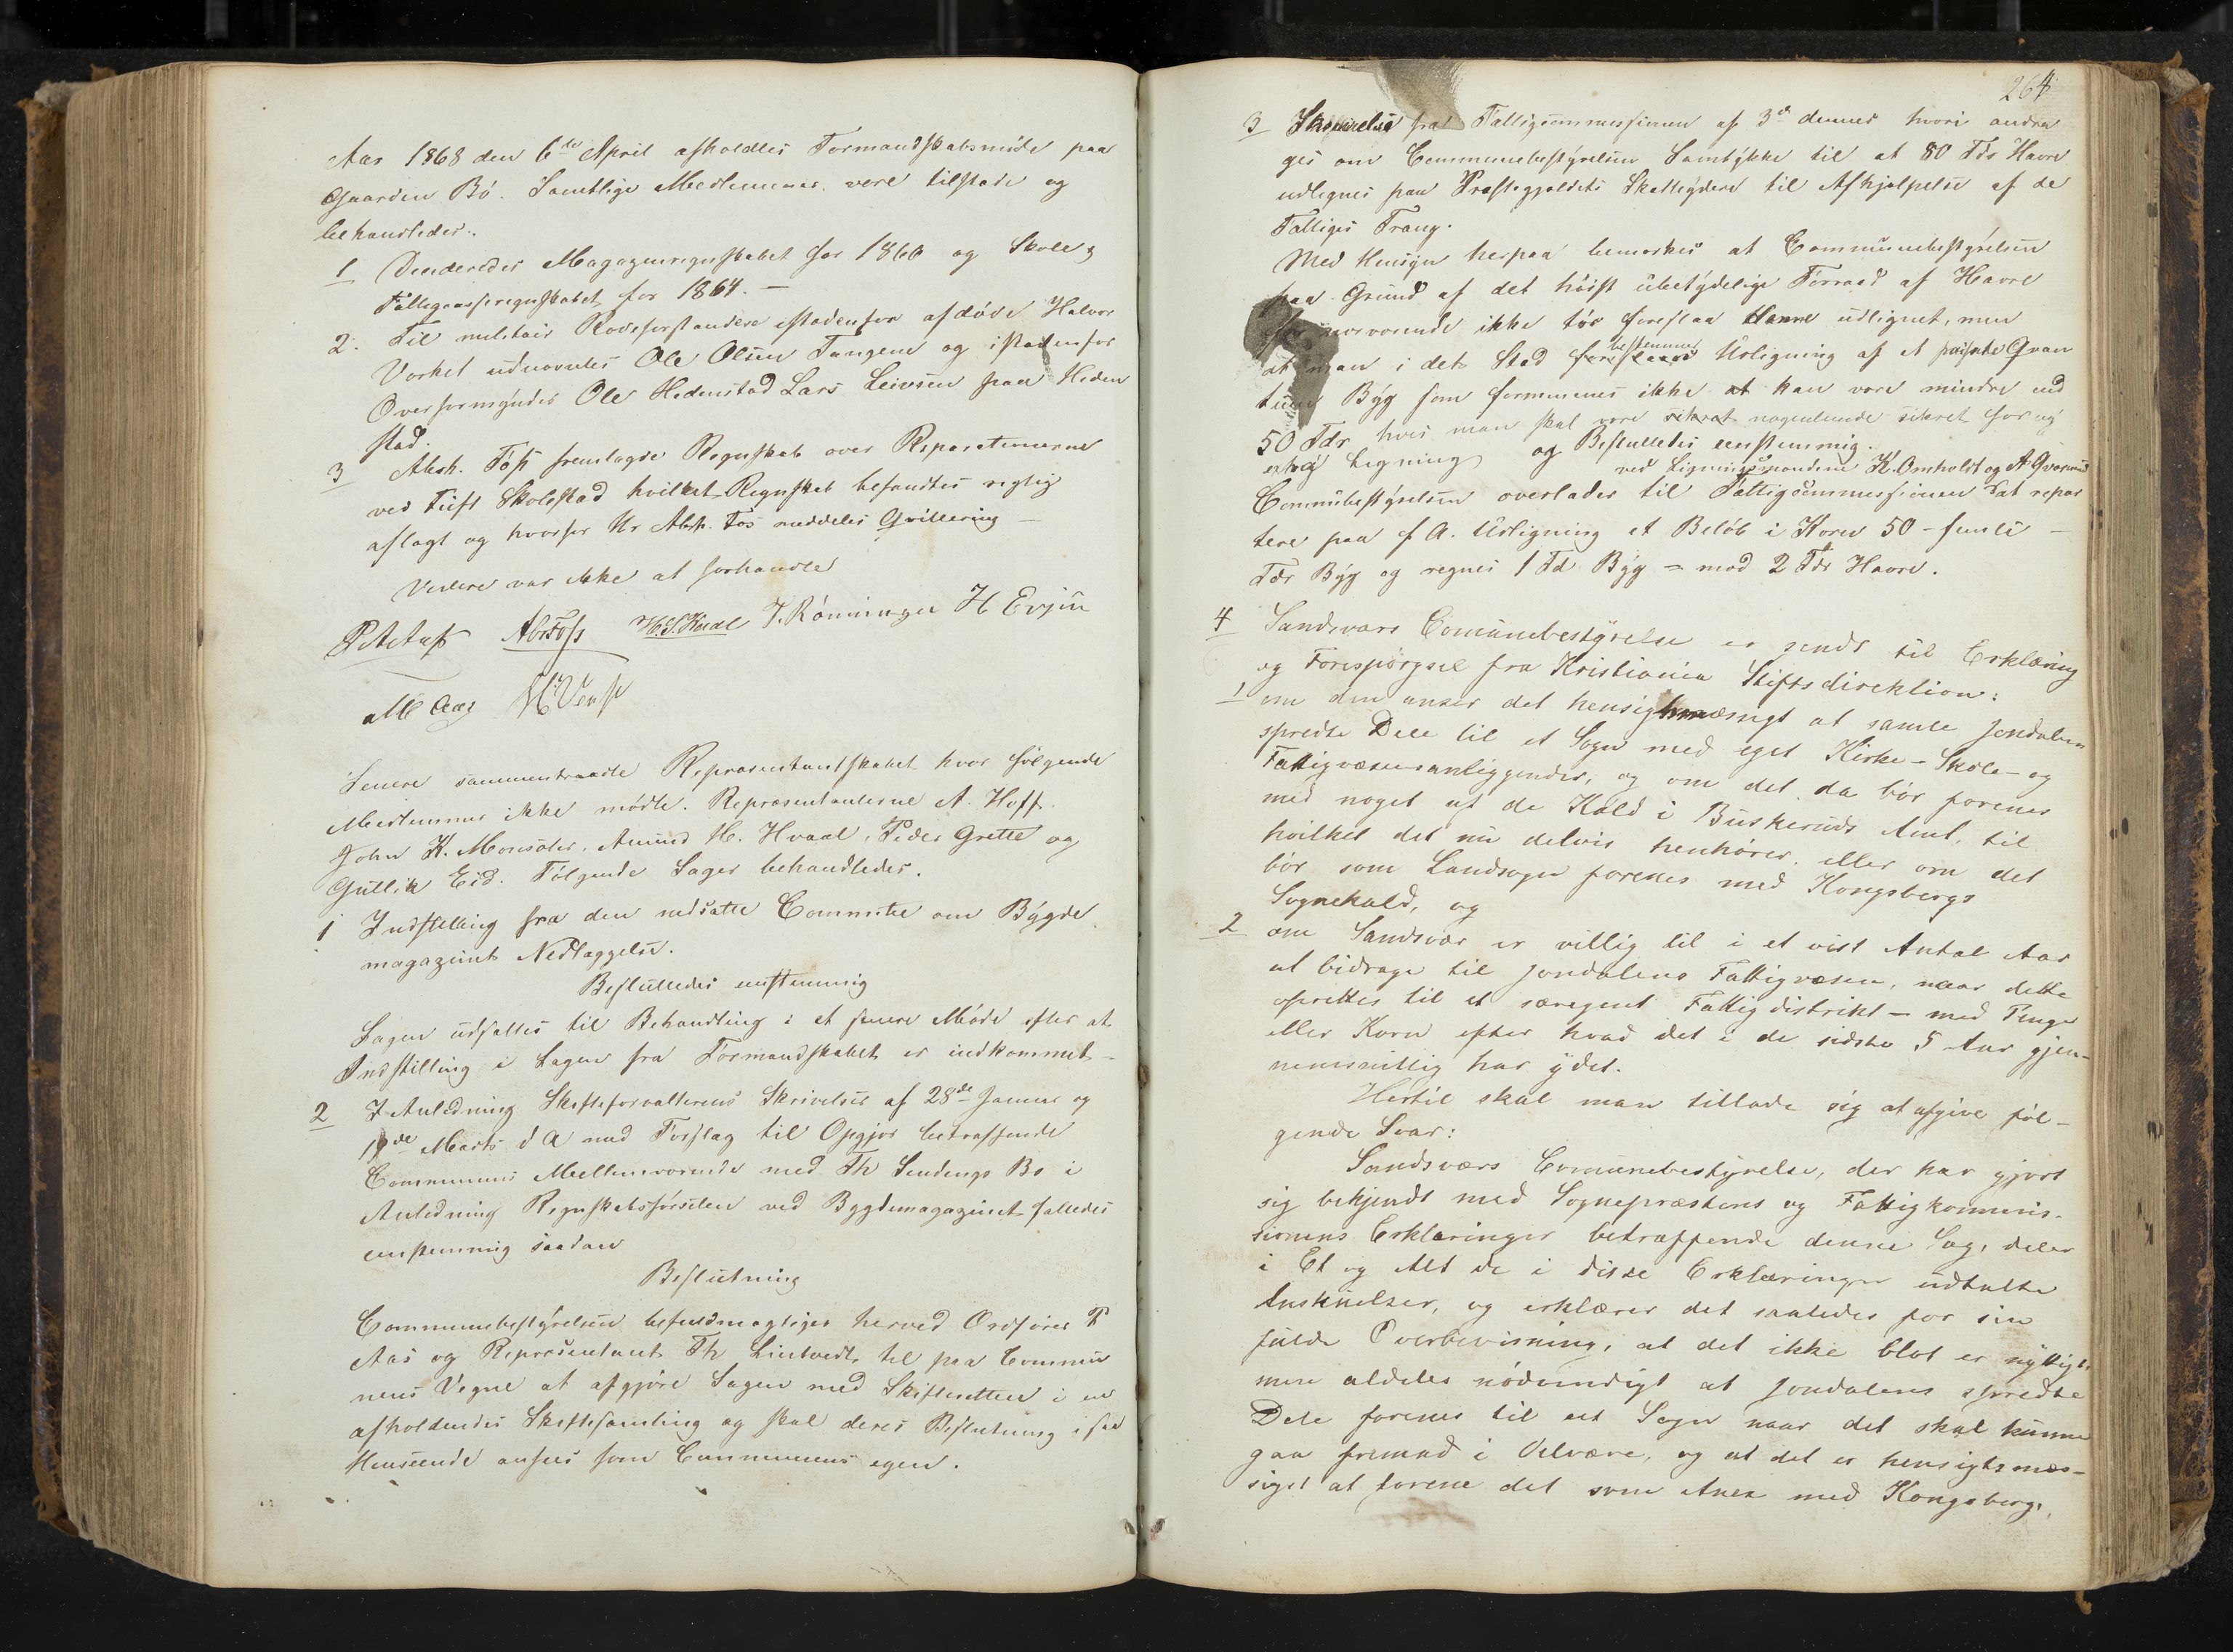 Aar 1868 den 6te April afholdtes Formandskabsmøde paa
Gaarden Bö. Samtlige Medlemmer vare tilstede og
behandledes:
1 Decideredes Magazinregnskabet for 1866 og Skole &
Fattigcasseregnskabet for 1864. —
2. Til militair Rodeforstandere istedenfor afdøde Halvor
Vorket udnævntes Ole Olsen Tangene og istedenfor
Overformynder Ole Hedenstad Lars Leivsen paa Heden
stad.
3 Abrh. Foss fremlagde Regnskab over Reparationerne
ved Tufts Skolestad hvilket Regnskab befandtes rigtig
aflagt og hvorfor Hr Abrh. Fos meddeles Qvittering —
Videre var ikke at forhandle
P A Aas Abr Foss H. S. Hvaal T. Rönningen H Evju
M Aas
Senere sammentraadte Repræsentantskabet hvor følgende
Medlemmer ikke mødte. Repræsentanterne A. Hoff.
John K. Moensæter, Amund H. Hvaal, Peder Grette og
Gullik Eid. Følgende Sager behandledes.
1 Indstilling fra den nedsatte Committe om Bygde
magazinets Nedlæggelse.
Besluttedes enstemmig
Sagen udsættes til Behandling i et senere Møde efter at
Indstilling i Sagen fra Formandskabet er indkommet —
2 I Anledning Skifteforvalterens Skrivelser af 28de Januar og
19de Marts d A med Forslag til Opgjør betræffende
Communens Mellemværende med Th Sendings Bo i
Anledning Regnskabsførselen ved Bygdemagazinet fattedes
enstemmig saadan
Beslutning
Communebestyrelsen befuldmægtiger herved Ordfører P
Aas og Repræsentant Th Lintvedt, til paa Commu
nens Vegne at afgjøre Sagen med Skifteretten i en
afholdendes Skiftesamling og skal deres Beslutning i saa
Henseende ansees som Communens egen.
264
3 Skrivelse fra Fattigcommissionen af 3de dennes hvori andra
ges om Communebestyrelsens Samtykke til at 80 Tdr Havre
udlignes paa Præstegjeldets Skatteydere til Afhjælpelse af de
Fattiges Trang.
Med Hensyn herpaa bemærkes at Communebestyrelsen
paa Grund af det høist ubetydelige Forraad af Havre
nærværende ikke tør foreslaa Havre udlignet, men
at man i det Sted foreslaar bestemmer Udligning af et Qvan
tum Byg som formenes ikke at kan være mindre end
50 Tdr hvis man skal være sikret nogenlunde sikret for ny
extra Ligning og Besluttedes eenstemmig.
ved Ligningsmændene K. Omholdt og A. Qvarme
Commubestyrelsen overlader til Fattigcommissionen at repar
tere paa f A. Udligning et Beløb i Korn 50 - femti —
Tdr Byg og regnes 1 Td Byg = mod 2 Tdr Havre.
4 Sandsværs Comunebestyrelse er sendt til Erklæring
og Forespørgsel fra Kristiania Stiftsdirektion:
1 om den anser det hensigtsmæssigt at samle Jondalens
spredte Dele til et Sogn med eget Kirke- Skole- og
Fattigvæsensanliggender, og om det da bør forenes
med noget af de Kald i Buskeruds Amt, til
hvilket det nu delvis henhører, eller om det
bør som Landsogn forenes med Kongsbergs
Sognekald, og
2 om Sandsvær er villig til i et vist Antal Aar
at bidrage til Jondalens Fattigvæsen, naar dette
oprettes til et særegent Fattigdistrikt — med Penge
eller Korn efter hvad det i de sidste 5 Aar gjen-
nemsnitlig har ydet.
Hertil skal man tillade sig at afgive føl-
gende Svar:
Sandsværs Comunebestyrelse, der har gjort
sig bekjendt med Sognepræstens og Fattigkommis-
sionens Erklæringer betræffende denne Sag, deler
i Et og Alt de i disse Erklæringer udtalte
Anskuelser, og erklærer det saaledes for sin
fulde Overbevisning, at det ikke blot er nyttigt,
men aldeles nødvendigt at Jondalens spredte
Dele forenes til eet Sogn naar det skal kunne
gaa fremad i Velvære, og at det er hensigtsmæs-
sigst at forene det som Anex med Kongsberg,